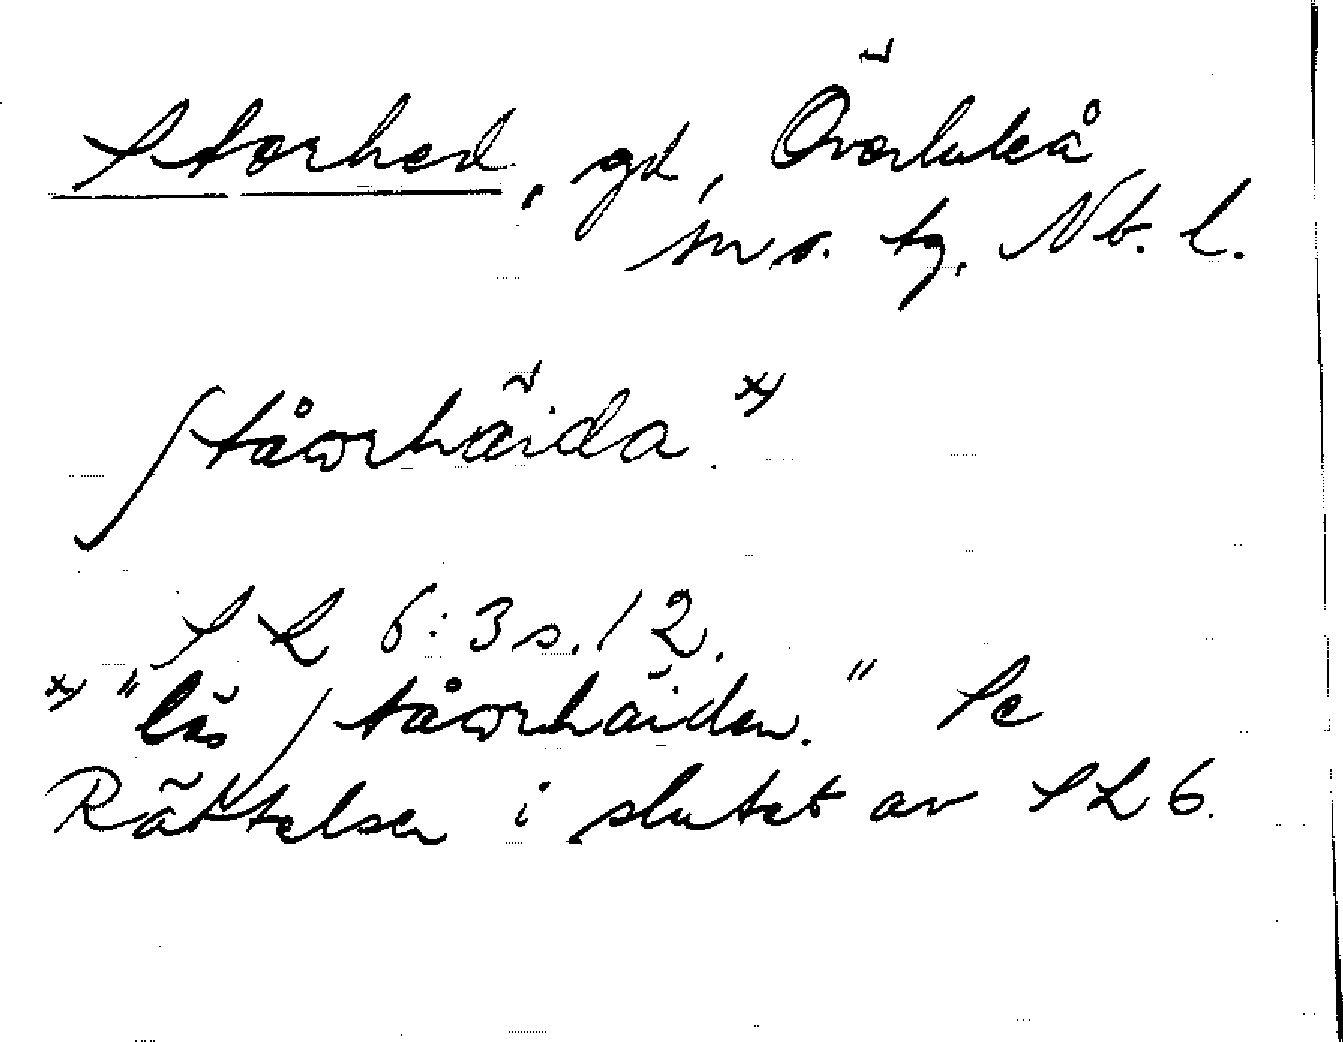 Storhed, gd, Överluleå
sn o. tg, Nb. l.
ʃtåωrhäida.*)
SL 6:3 s. 12.
*) "läs ʃtåωrhäiden." Se
Rättelser i slutet av SL 6.